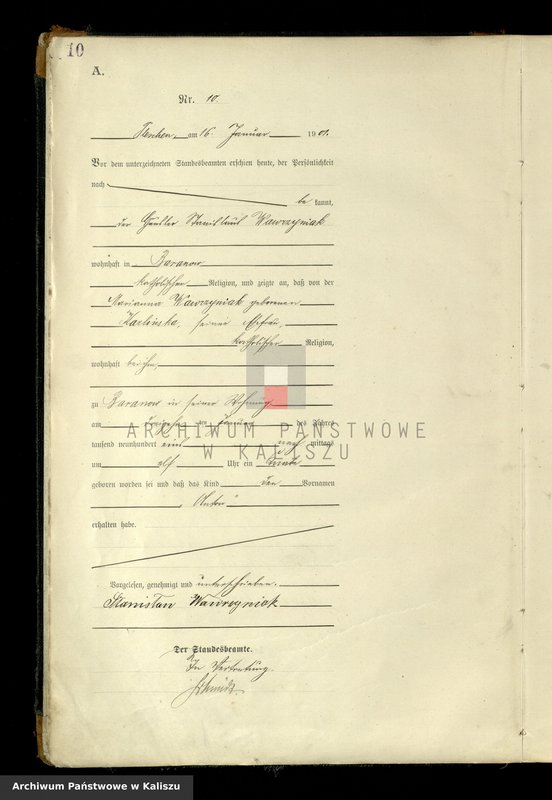 10
A.
Nr. 10.
am 16. Januar 1901.
Vor dem unterzeichneten Standesbeamten erschien heute, der Persönlichkeit
nach
be kannt,
der Häusler Stanislaus Wawrzyniak
wohnhaft in Baranow
katholischer Religion, und zeigte an, daß von der
Marianna Wawrzyniak geborenen
Karlinska, seiner Ehefrau,
katholischer Religion,
wohnhaft bei ihm,
zu Baranow in seiner Wohnung
am des Jahres
tausend neunhundert eins nach mittags
um elf Uhr ein
geboren worden sei und daß das Kind den Vornamen
"Anton"
erhalten habe.
Vorgelesen, genehmigt und unterschrieben.
Stanisław Wawrzyniak
Der Standesbeamte.
In Vertretung.
Schmidt
ARCHIWUM PAŃSTWOWE
W KALISZU
Archiwum Państwowe w Kaliszu